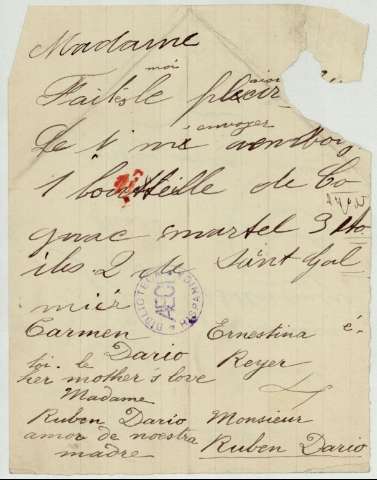 Madame
moi
Faites le plaisir
de m'envoyer
1 bouteille de Co
gnac martel 3 éto
iles 2 de Saint Gal
mier
Carmen Ernestina
Dario Reyer
toi. le
her mother's love
Madame
Ruben Dario Monsieur
amor de noestra Ruben Dario
madre
BIBLIOTECA HISPANICA
AECI